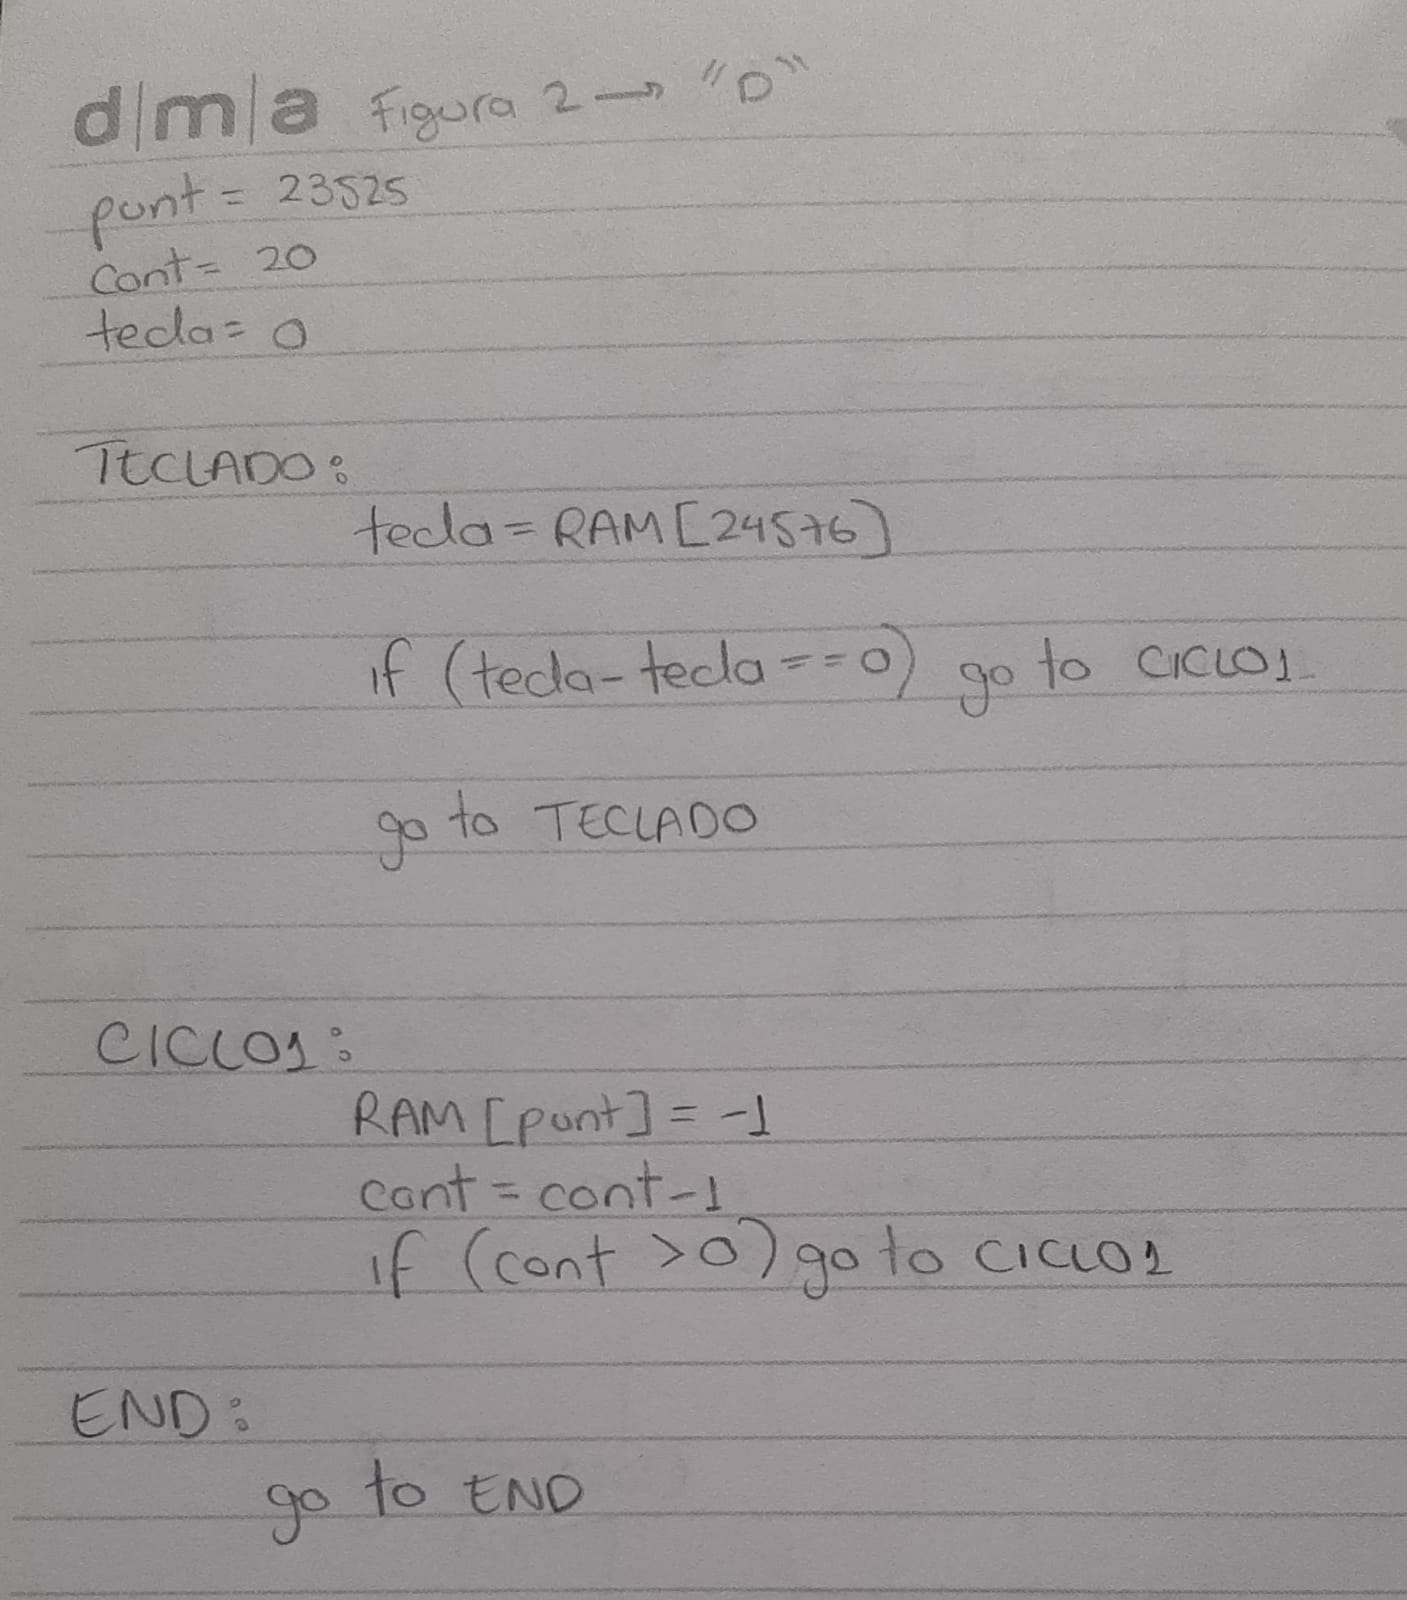 d|m|a Figura 2 → "D"
punt = 23525
Cont = 20
tecla = 0
TECLADO:
tecla = RAM [24576]
if (tecla - tecla == 0) go to CICLO1
go to TECLADO
CICLO1:
RAM [punt] = -1
cont = cont - 1
if (cont > 0) go to CICLO1
END:
go to END